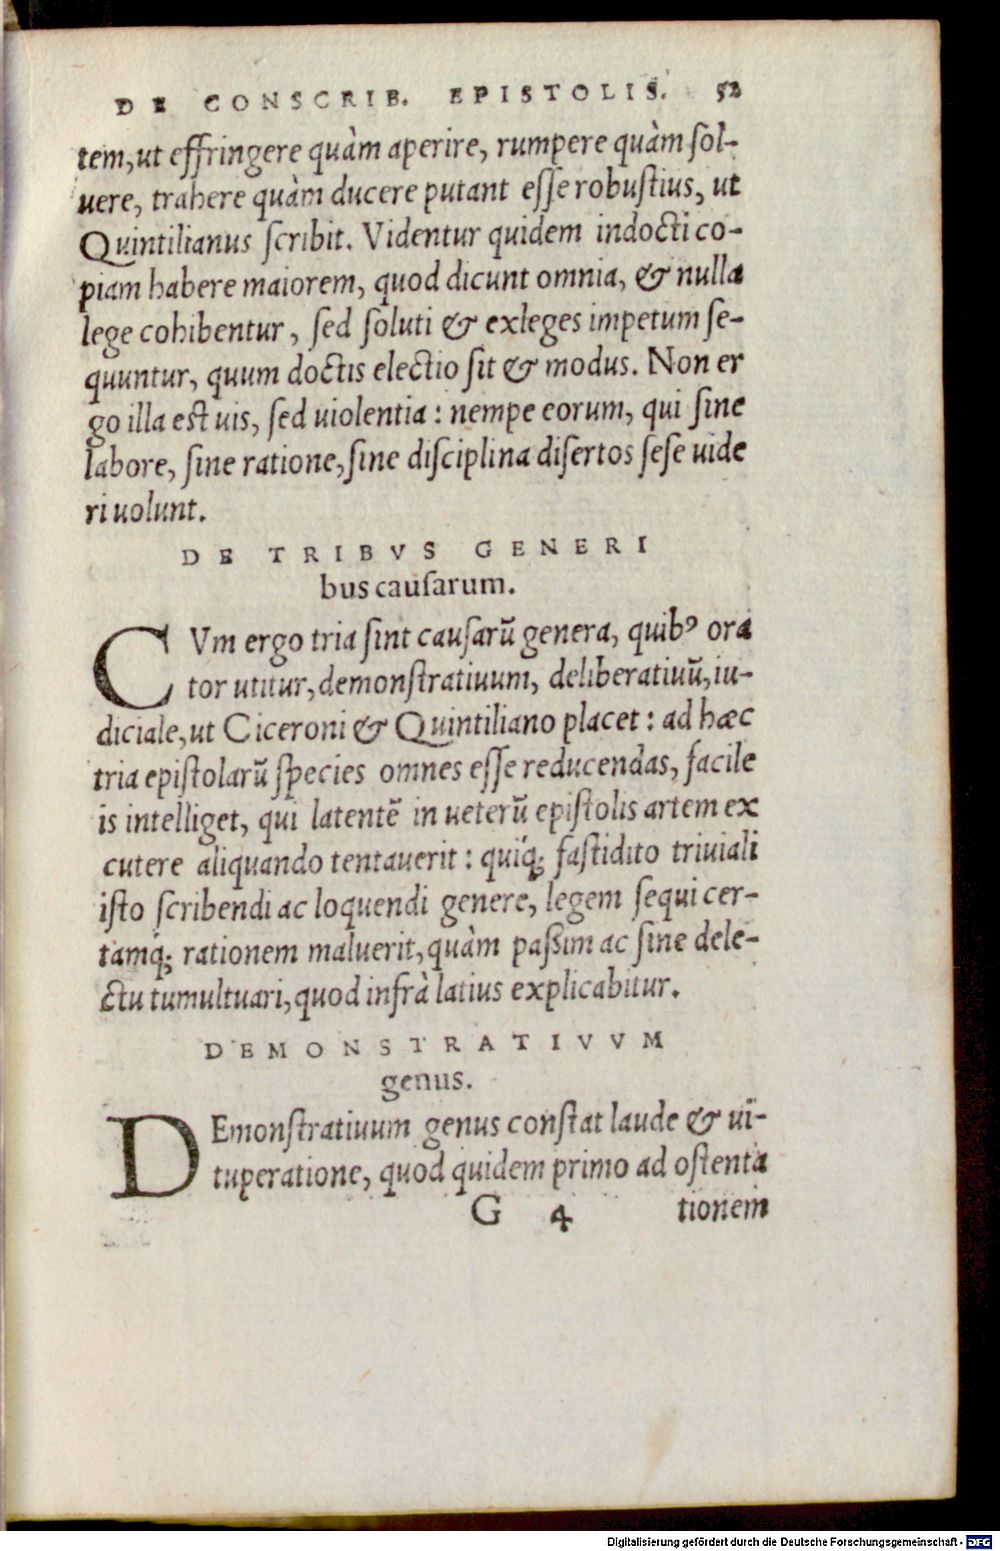 DE CONSCRIB. EPISTOLIS. 52
tem, ut effringere quàm aperire, rumpere quàm ſol-
uere, trahere quàm ducere putant eſſe robuſtius, ut
Quintilianus ſcribit. Videntur quidem indocti co-
piam habere maiorem, quod dicunt omnia, & nulla
lege cohibentur, ſed ſoluti & exleges impetum ſe-
quuntur, quum doctis electio ſit & modus. Non er
go illa eſt uis, ſed uiolentia: nempe eorum, qui ſine
labore, ſine ratione, ſine diſciplina diſertos ſeſe uide
ri uolunt.
DE TRIBVS GENERI
bus cauſarum.
CVm ergo tria ſint cauſarũ genera, quibꝰ ora
tor utitur, demonſtratiuum, deliberatiuũ, iu-
diciale, ut Ciceroni & Quintiliano placet: ad hæc
tria epiſtolarũ ſpecies omnes eſſe reducendas, facile
is intelliget, qui latentẽ in ueterũ epiſtolis artem ex
cutere aliquando tentauerit: quíq; faſtidito triuiali
iſto ſcribendi ac loquendi genere, legem ſequi cer-
tamq́; rationem maluerit, quàm paßim ac ſine dele-
ctu tumultuari, quod infrà latius explicabitur.
DEMONSTRATIVVM
genus.
DEmonſtratiuum genus conſtat laude & ui-
tuperatione, quod quidem primo ad oſtenta
G 4 tionem
Digitalisierung gefördert durch die Deutsche Forschungsgemeinschaft - DFG